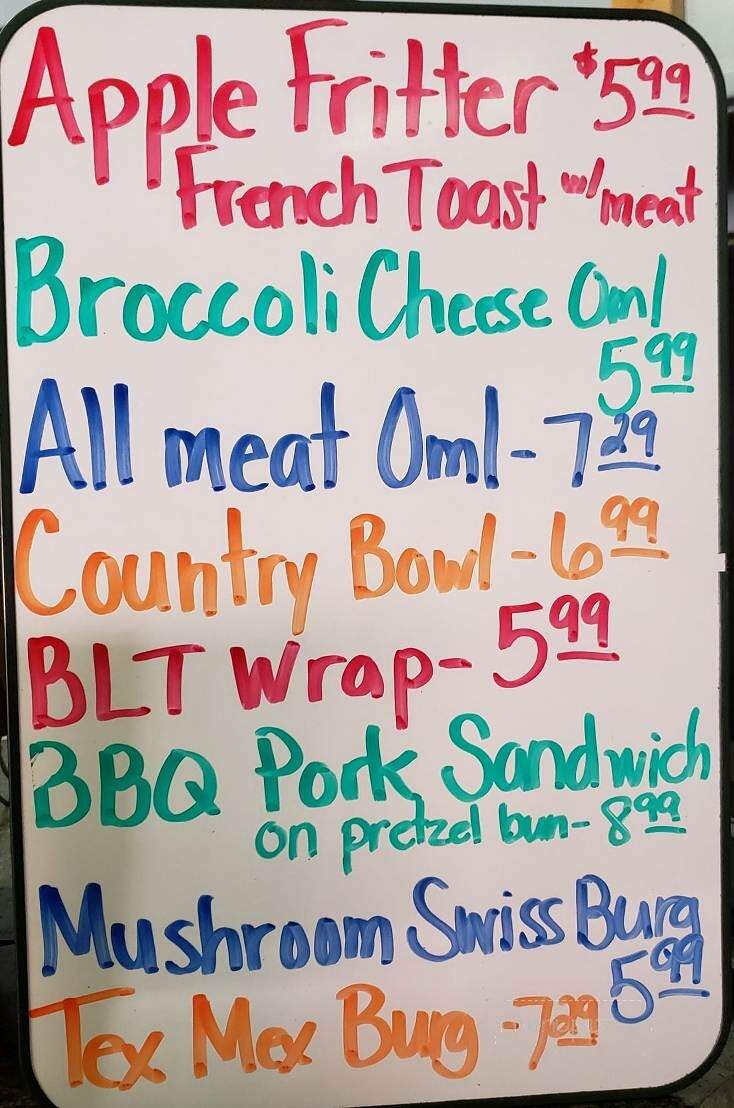 Apple Fritter $5.99
French Toast w/meat
Broccoli Cheese Oml
5.99
All meat Oml - 7.29
Country Bowl - 6.99
BLT Wrap - 5.99
BBQ Pork Sandwich
on pretzel bun - 8.99
Mushroom Swiss Burg
5.99
Tex Mex Burg - 7.29